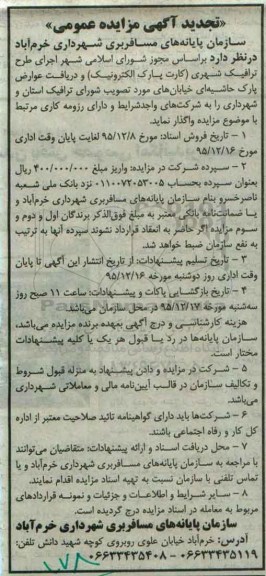 «تجدید آگهی مزایده عمومی»
سازمان پایانه‌های مسافربری شهرداری خرم‌آباد
درنظر دارد براساس مجوز شورای اسلامی شهر اجرای طرح
ترافیک شهری (کارت پارک الکترونیک) و دریافت عوارض
پارک حاشیه‌ای خیابان‌های مورد تصویب شورای ترافیک استان و
شهرداری را به شرکت‌های واجدشرایط و دارای رزومه کاری مرتبط
با موضوع مزایده واگذار نماید.
۱ – تاریخ فروش اسناد: مورخ ۹۵/۱۲/۸ لغایت پایان وقت اداری
مورخ ۹۵/۱۲/۱۶
۲ – سپرده شرکت در مزایده: واریز مبلغ ۴۰۰/۰۰۰/۰۰۰ ریال
بعنوان سپرده بحساب ۰۱۱۰۰۷۲۰۵۳۰۰۵ نزد بانک ملی شعبه
ناصرخسرو بنام سازمان پایانه‌های مسافربری شهرداری خرم‌آباد و
یا ضمانت‌نامه بانکی معتبر به مبلغ فوق‌الذکر برندگان اول و دوم و
سوم مزایده اگر حاضر به انعقاد قرارداد نشوند سپرده آنها به ترتیب
به نفع سازمان ضبط خواهد شد.
۳ – تاریخ تسلیم پیشنهادات: از تاریخ انتشار این آگهی تا پایان
وقت اداری روز دوشنبه مورخه ۹۵/۱۲/۱۶
۴ – تاریخ بازگشایی پاکات و پیشنهادات: ساعت ۱۱ صبح روز
سه‌شنبه مورخه ۹۵/۱۲/۱۷ در محل سازمان می‌باشد.
هزینه کارشناسی و درج آگهی بعهده برنده مزایده می‌باشد،
سازمان پایانه‌ها در رد یا قبول هر یک یا کلیه پیشنهادات
مختار است.
۵ – شرکت در مزایده و دادن پیشنهاد به منزله قبول شروط
و تکالیف سازمان در قالب آیین‌نامه مالی و معاملاتی شهرداری
می‌باشد.
۶ – شرکت‌ها باید دارای گواهینامه تائید صلاحیت معتبر از اداره
کل کار و رفاه اجتماعی باشند.
۷ – محل دریافت اسناد و ارائه پیشنهادات: متقاضیان می‌توانند
با مراجعه به سازمان پایانه‌های مسافربری شهرداری خرم‌آباد و یا
تماس تلفنی با سازمان نسبت به تهیه اسناد مزایده اقدام نمایند.
۸ – سایر شرایط و اطلاعات و جزئیات و نمونه قراردادهای
مربوط به معامله در اسناد مزایده درج گردیده است.
سازمان پایانه‌های مسافربری شهرداری خرم‌آباد
آدرس: خرم‌آباد خیابان علوی روبروی کوچه شهید دانش تلفن:
۰۶۶۳۳۴۳۵۱۱۹ – ۰۶۶۳۳۴۳۵۴۰۸
۱۷۸